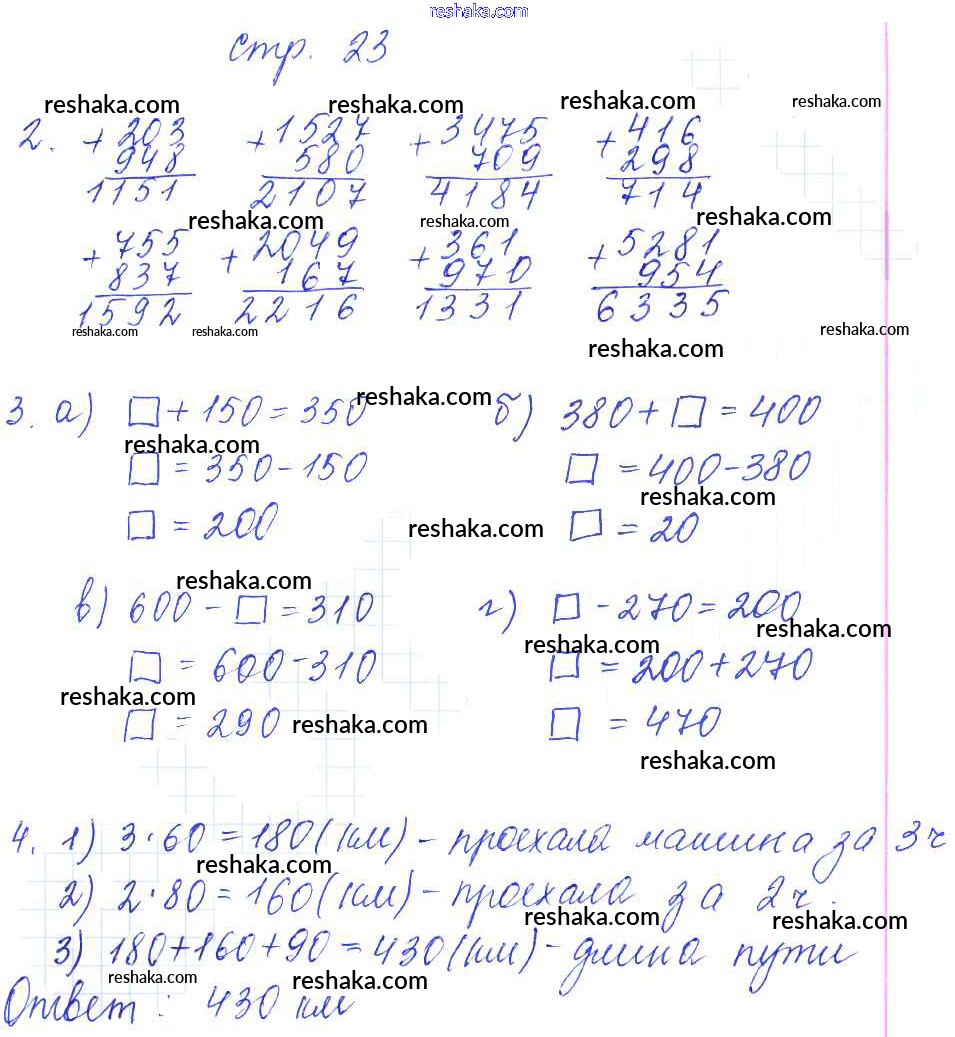 reshaka.com
стр. 23
reshaka.com reshaka.com reshaka.com reshaka.com
2. + 203 + 1527 + 3475 + 416
948 580 709 298
1151 2107 4184 714
reshaka.com reshaka.com reshaka.com
+ 755 + 2049 + 361 + 5281
837 167 970 954
1592 2216 1331 6335
reshaka.com reshaka.com reshaka.com
reshaka.com
reshaka.com
3. а) □ + 150 = 350 б) 380 + □ = 400
reshaka.com
□ = 350 - 150 □ = 400 - 380
reshaka.com
□ = 200 □ = 20
reshaka.com
reshaka.com
в) 600 - □ = 310 г) □ - 270 = 200
reshaka.com reshaka.com
□ = 600 - 310 □ = 200 + 270
reshaka.com
□ = 290 □ = 470
reshaka.com
reshaka.com
4. 1) 3 · 60 = 180 (км) - проехала машина за 3 ч
reshaka.com
2) 2 · 80 = 160 (км) - проехала за 2 ч.
reshaka.com reshaka.com
3) 180 + 160 + 90 = 430 (км) - длина пути
reshaka.com reshaka.com
Ответ: 430 км